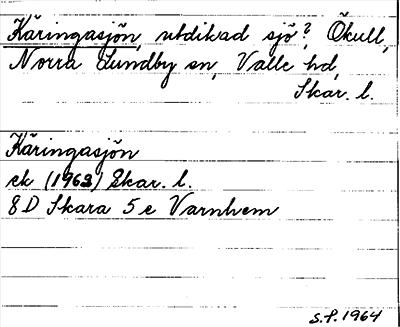 Käringasjön, utdikad sjö?, Ökull,
Norra Lundby sn, Valle hd,
Skar. l.
Käringasjön
ek (1963) Skar. l.
8 D Skara 5 e Varnhem
S.F. 1964